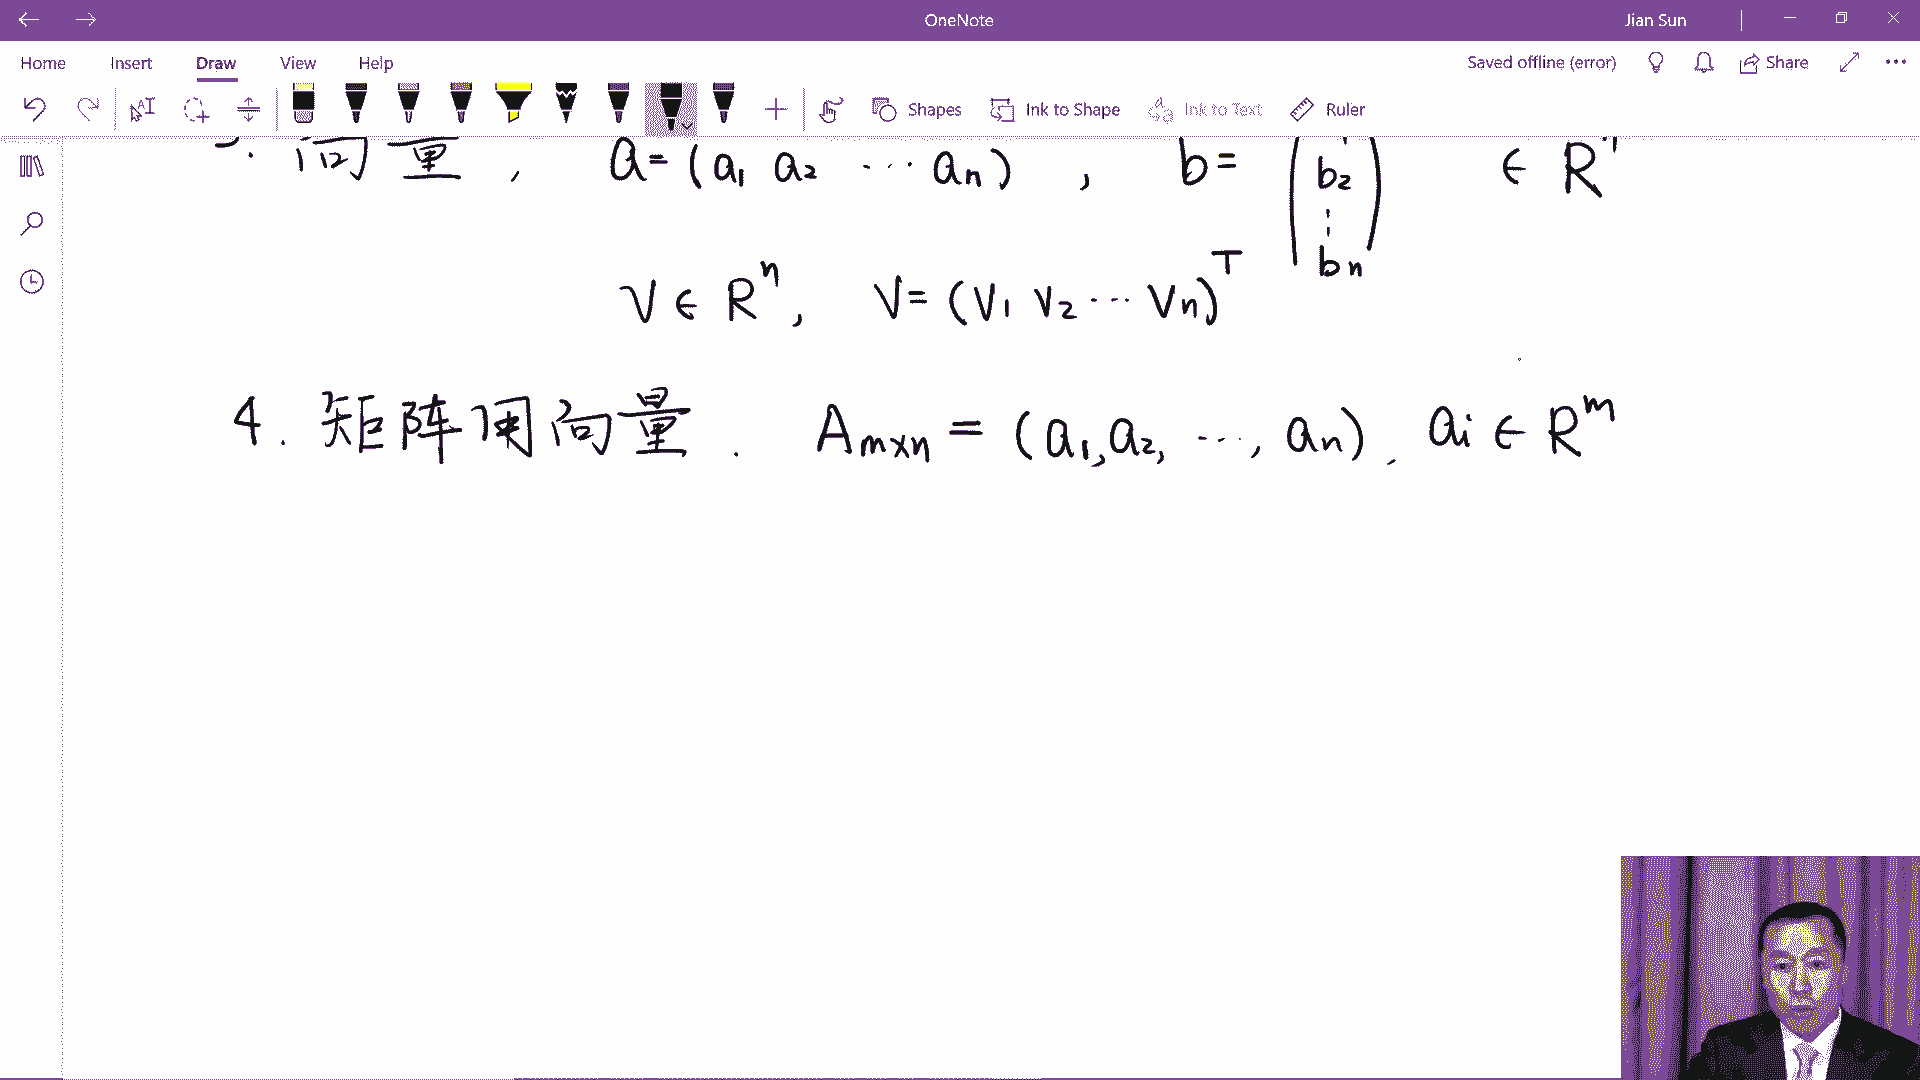 OneNote
Jian Sun
Home Insert Draw View Help
Saved offline (error) Share
Shapes Ink to Shape Ink to Text Ruler
向量, a = (a₁ a₂ ⋯ aₙ), b = (b₂ ⋮ bₙ) ∈ Rⁿ
V ∈ Rⁿ, V = (V₁ V₂ ⋯ Vₙ)ᵀ
4. 矩阵用向量. Aₘₓₙ = (a₁, a₂, ⋯, aₙ), aᵢ ∈ Rᵐ